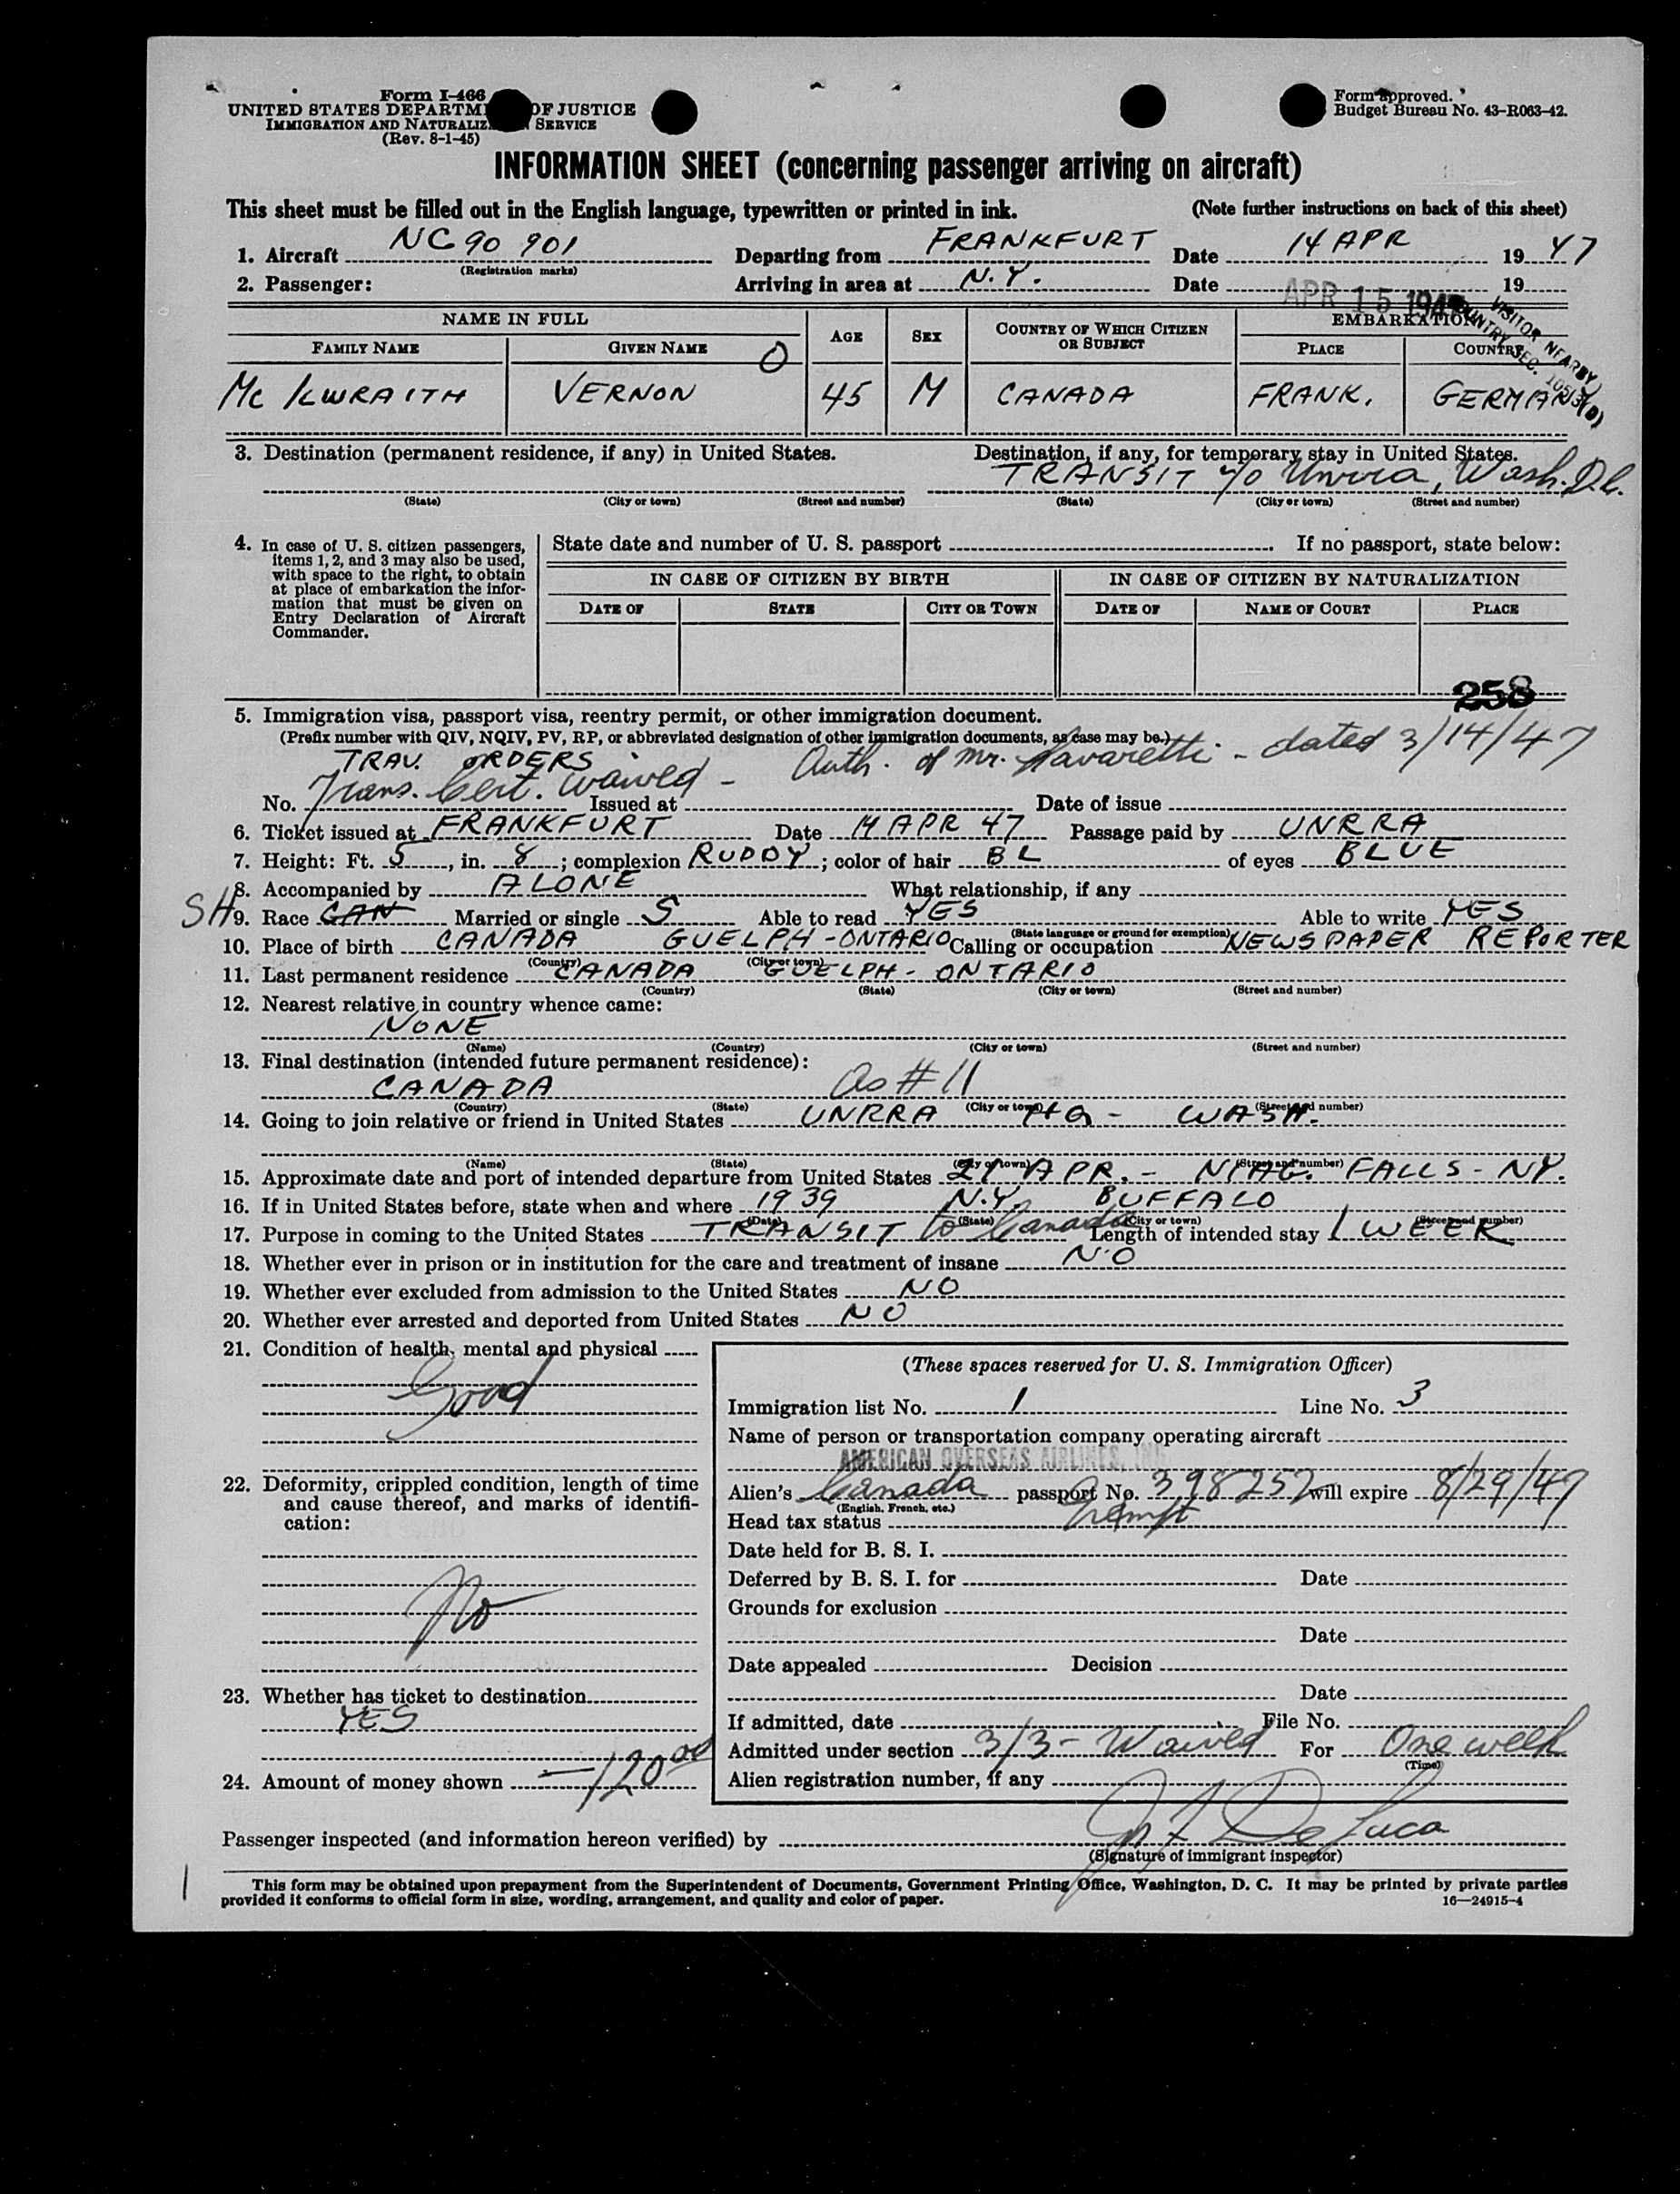 Form I-466
UNITED STATES DEPARTM OF JUSTICE
IMMIGRATION AND NATURALIZ SERVICE
(Rev. 8-1-45)
Form approved.
Budget Bureau No. 43-R063-42.
INFORMATION SHEET (concerning passenger arriving on aircraft)
This sheet must be filled out in the English language, typewritten or printed in ink. (Note further instructions on back of this sheet)
1. Aircraft NC 90 901 Departing from FRANKFURT Date 14 APR 1947
(Registration marks)
2. Passenger: Arriving in area at N.Y. Date APR 15 194 19
VISITOR NEARBY
COUNTRY SEC.
NAME IN FULL AGE SEX COUNTRY OF WHICH CITIZEN OR SUBJECT EMBARKATION
FAMILY NAME GIVEN NAME O PLACE COUNTRY
Mc ILWRAITH VERNON 45 M CANADA FRANK. GERMANY
3. Destination (permanent residence, if any) in United States. Destination, if any, for temporary stay in United States.
TRANSIT c/o Unrra, Wash. D.C.
(State) (City or town) (Street and number) (State) (City or town) (Street and number)
4. In case of U. S. citizen passengers, items 1, 2, and 3 may also be used, with space to the right, to obtain at place of embarkation the information that must be given on Entry Declaration of Aircraft Commander.
State date and number of U. S. passport . If no passport, state below:
IN CASE OF CITIZEN BY BIRTH IN CASE OF CITIZEN BY NATURALIZATION
DATE OF STATE CITY OR TOWN DATE OF NAME OF COURT PLACE
258
5. Immigration visa, passport visa, reentry permit, or other immigration document.
(Prefix number with QIV, NQIV, PV, RP, or abbreviated designation of other immigration documents, as case may be.)
TRAV. ORDERS Auth. of Mr. - dated 3/14/47
No. Trans. Cert. waived - Issued at Date of issue
6. Ticket issued at FRANKFURT Date 14 APR 47 Passage paid by UNRRA
7. Height: Ft. 5, in. 8; complexion RUDDY; color of hair BL of eyes BLUE
8. Accompanied by ALONE What relationship, if any
SH 9. Race CAN Married or single S Able to read YES Able to write YES
(State language or ground for exemption)
10. Place of birth CANADA GUELPH - ONTARIO Calling or occupation NEWSPAPER REPORTER
(Country) (City or town)
11. Last permanent residence CANADA GUELPH - ONTARIO
(Country) (State) (City or town) (Street and number)
12. Nearest relative in country whence came:
NONE
(Name) (Country) (City or town) (Street and number)
13. Final destination (intended future permanent residence):
CANADA As #11
(Country) (State) (City or town) (Street and number)
14. Going to join relative or friend in United States UNRRA HQ - WASH.
(Name) (State) (City or town) (Street and number)
15. Approximate date and port of intended departure from United States 21 APR. - NIAG. FALLS - NY.
16. If in United States before, state when and where 1939 N.Y. BUFFALO
(Date) (State) (City or town) (Street and number)
17. Purpose in coming to the United States TRANSIT to Canada Length of intended stay 1 WEEK
18. Whether ever in prison or in institution for the care and treatment of insane NO
19. Whether ever excluded from admission to the United States NO
20. Whether ever arrested and deported from United States NO
21. Condition of health, mental and physical
Good
22. Deformity, crippled condition, length of time and cause thereof, and marks of identification:
No
23. Whether has ticket to destination
YES
24. Amount of money shown 120 00
(These spaces reserved for U. S. Immigration Officer)
Immigration list No. 1 Line No. 3
Name of person or transportation company operating aircraft
AMERICAN OVERSEAS AIRLINES, INC.
Alien's Canada passport No. 398252 will expire 8/29/47
(English, French, etc.)
Head tax status Exempt
Date held for B. S. I.
Deferred by B. S. I. for Date
Grounds for exclusion
Date
Date appealed Decision
Date
If admitted, date File No.
Admitted under section 3/3 - Waived For One week
(Time)
Alien registration number, if any
Passenger inspected (and information hereon verified) by De Luca
(Signature of immigrant inspector)
This form may be obtained upon prepayment from the Superintendent of Documents, Government Printing Office, Washington, D. C. It may be printed by private parties
provided it conforms to official form in size, wording, arrangement, and quality and color of paper. 16—24915-4